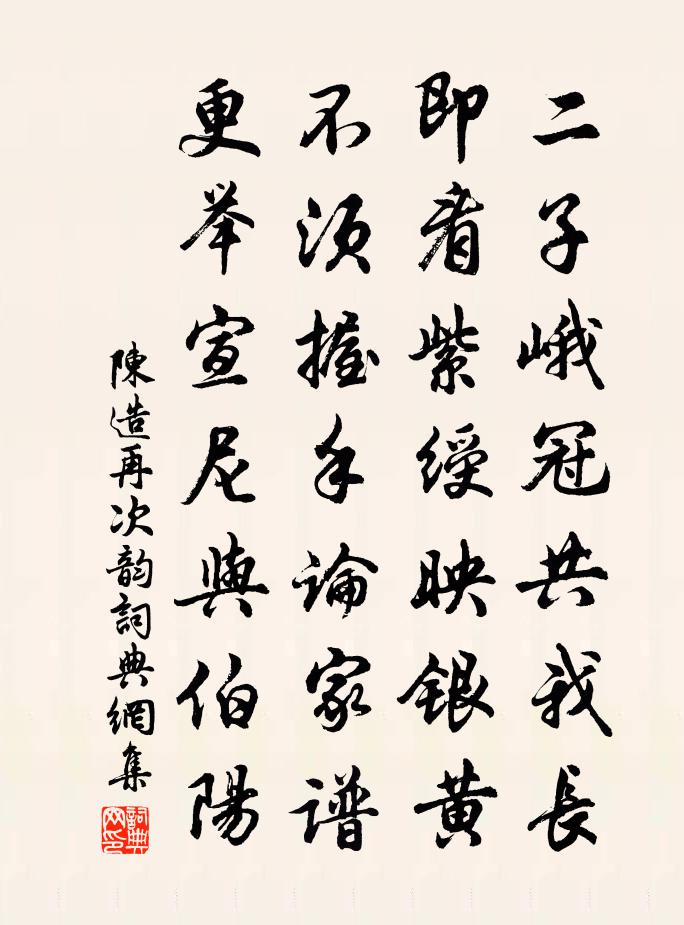 二子峨冠共我長
即看紫綬映銀黃
不須握手論家譜
更举宣尼與伯陽
陳造再次韵詞典網集
詞典網印